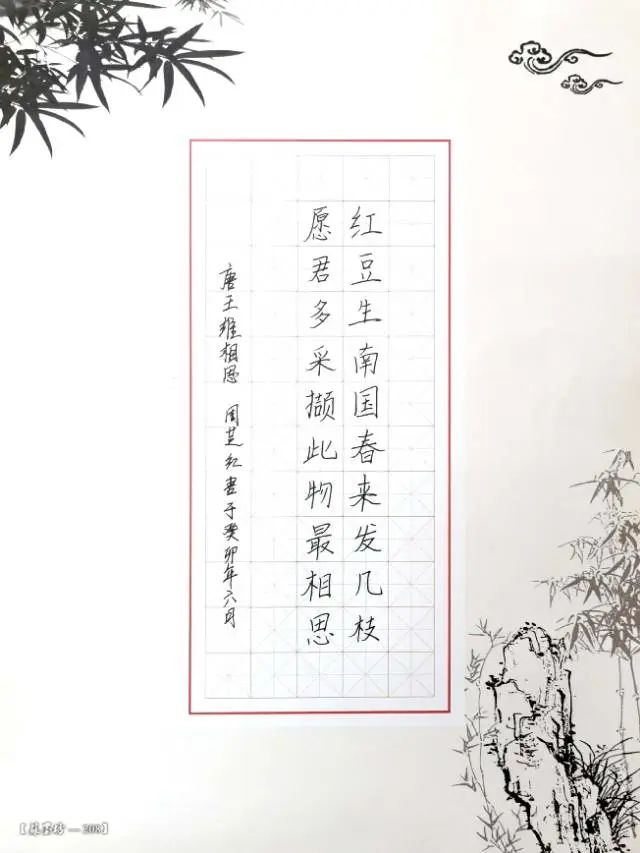 红豆生南国春来发几枝
愿君多采撷此物最相思
唐王维相思 周芝红书于癸卯年六月